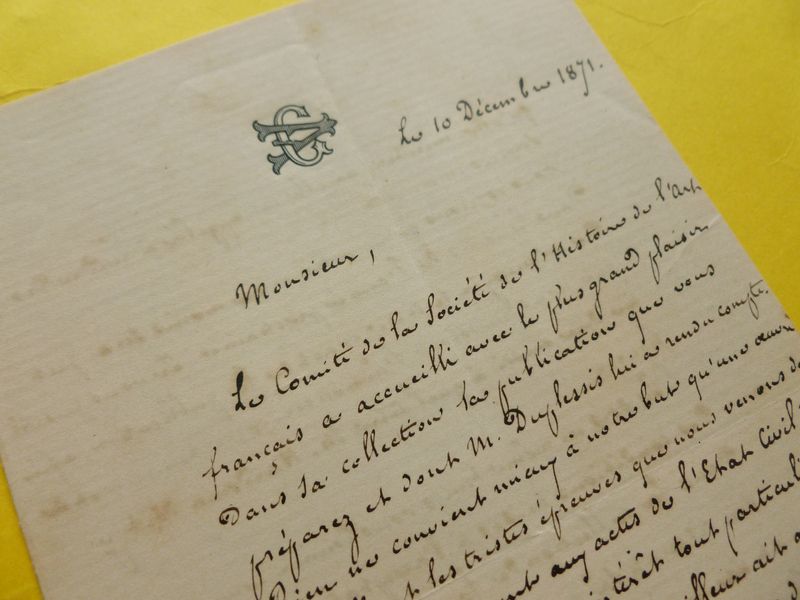 Le 10 Décembre 1871.
Monsieur,
Le Comité de la Société de l'Histoire de l'Art
français a accueilli avec le plus grand plaisir
dans sa collection la publication que vous
préparez et dont M. Duplessis lui a rendu compte.
Rien ne convient mieux à notre but qu'une œuvre
et les tristes épreuves que nous venons de
aux actes de l'Etat Civil
intérêt tout particuli
ait